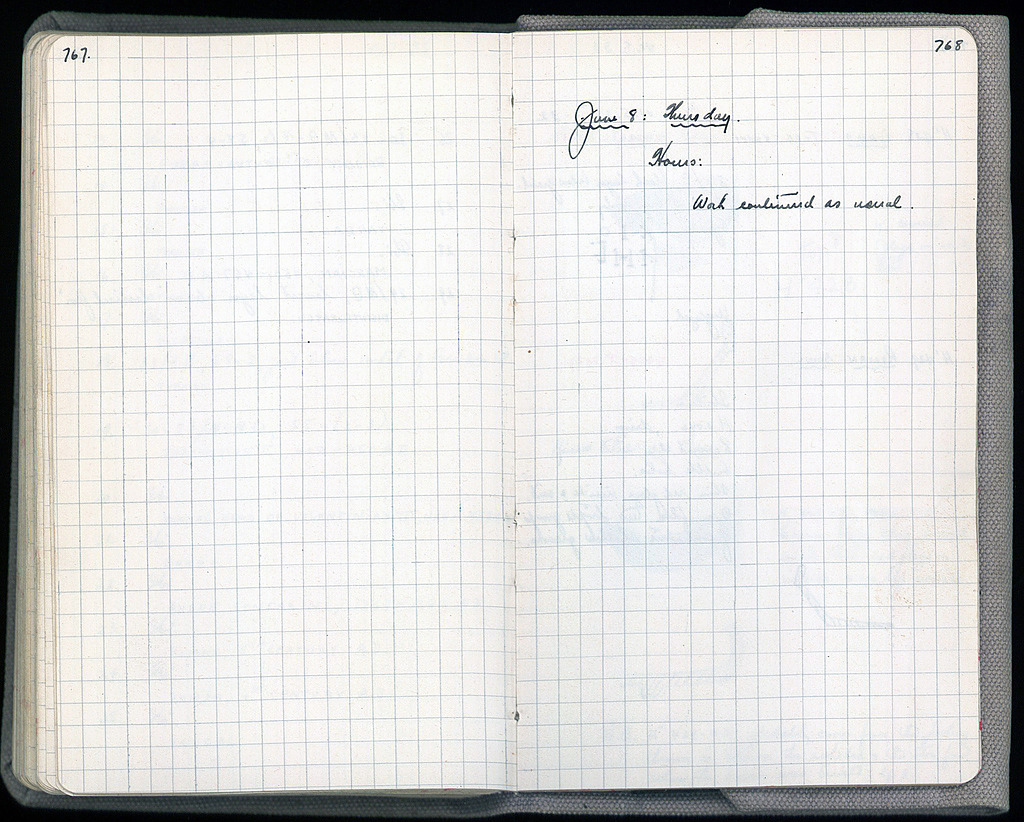 767.
768
June 8: Thursday.
Hours:
Work continued as usual.